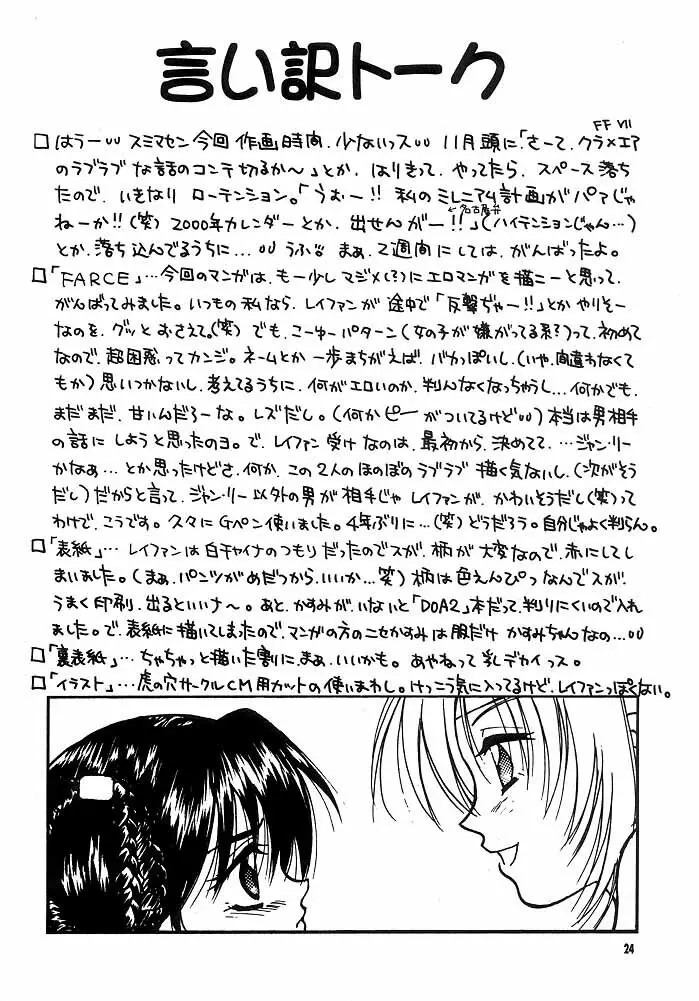 言い訳トーク
FF VII
□はうー○○スミマセン今回作画時間、少ないっス○○ 11月頭に「さーて、クラ×エア
のラブラブな話のコンテ切るか〜」とか、はりきって、やってたら、スペース落ち
たので、いきなり ローテンション。「うおー!! 私のミレニアム計画がパァじゃ
ねーか!!(笑) 2000年カレンダーとか、出せんがー!!」(ハイテンションじゃん…)
←名古屋弁
とか、落ち込んでるうちに…○○ うふ。 まぁ、2週間にしては、がんばったよ。
□「FARCE」…今回のマンガは、もー少しマジメ(?)にエロマンガを描こーと思って、
がんばってみました。いつもの私なら、レイファンが途中で「反撃ぢゃー!!」とかやりそー
なのを、グッとおさえて。(笑) でも、こーゆーパターン(女の子が嫌がってる系?)って、初めて
なので、超困惑ってカンジ。ネームとか一歩まちがえば、バカっぽいし、(いや、間違わなくて
もか)思いつかないし、考えてるうちに、何がエロいのか、判んなくなっちゃうし…何かでも、
まだまだ、甘いんだろーな。レズだし。(何かピーがついてるけど○○)本当は男相手
の話にしようと思ったのヨ。で、レイファン受けなのは、最初から、決めてて、…ジャン・リー
かなぁ…とか思ったけどさ、何か、この2人のほのぼのラブラブ描く気ないし、(次がそう
だし)だからと言って、ジャン・リー以外の男が相手じゃレイファンが、かわいそうだし(笑)って
わけで、こうです。久々にGペン使いました。4年ぶりに…(笑)どうだろう。自分じゃよく判らん。
□「表紙」…レイファンは白チャイナのつもりだったのでスが、柄が大変なので、赤にしてし
まいました。(まぁ、パンツがめだつから、いいか…笑)柄は色えんぴつなんでスが、
うまく印刷、出るといいナ〜。あと、かすみがいないと「DOA2」本だって、判りにくいので入れ
ました。で、表紙に描いてしまったので、マンガの方のニセかすみは服だけ かすみちゃんなの…○○
□「裏表紙」…ちゃちゃっと描いた割にに、まぁ、いいかも。あやねって乳デカイっス。
□「イラスト」…虎の穴サークルCM用カットの使いまわし。けっこう気に入ってるけど、レイファンっぽくない。
24